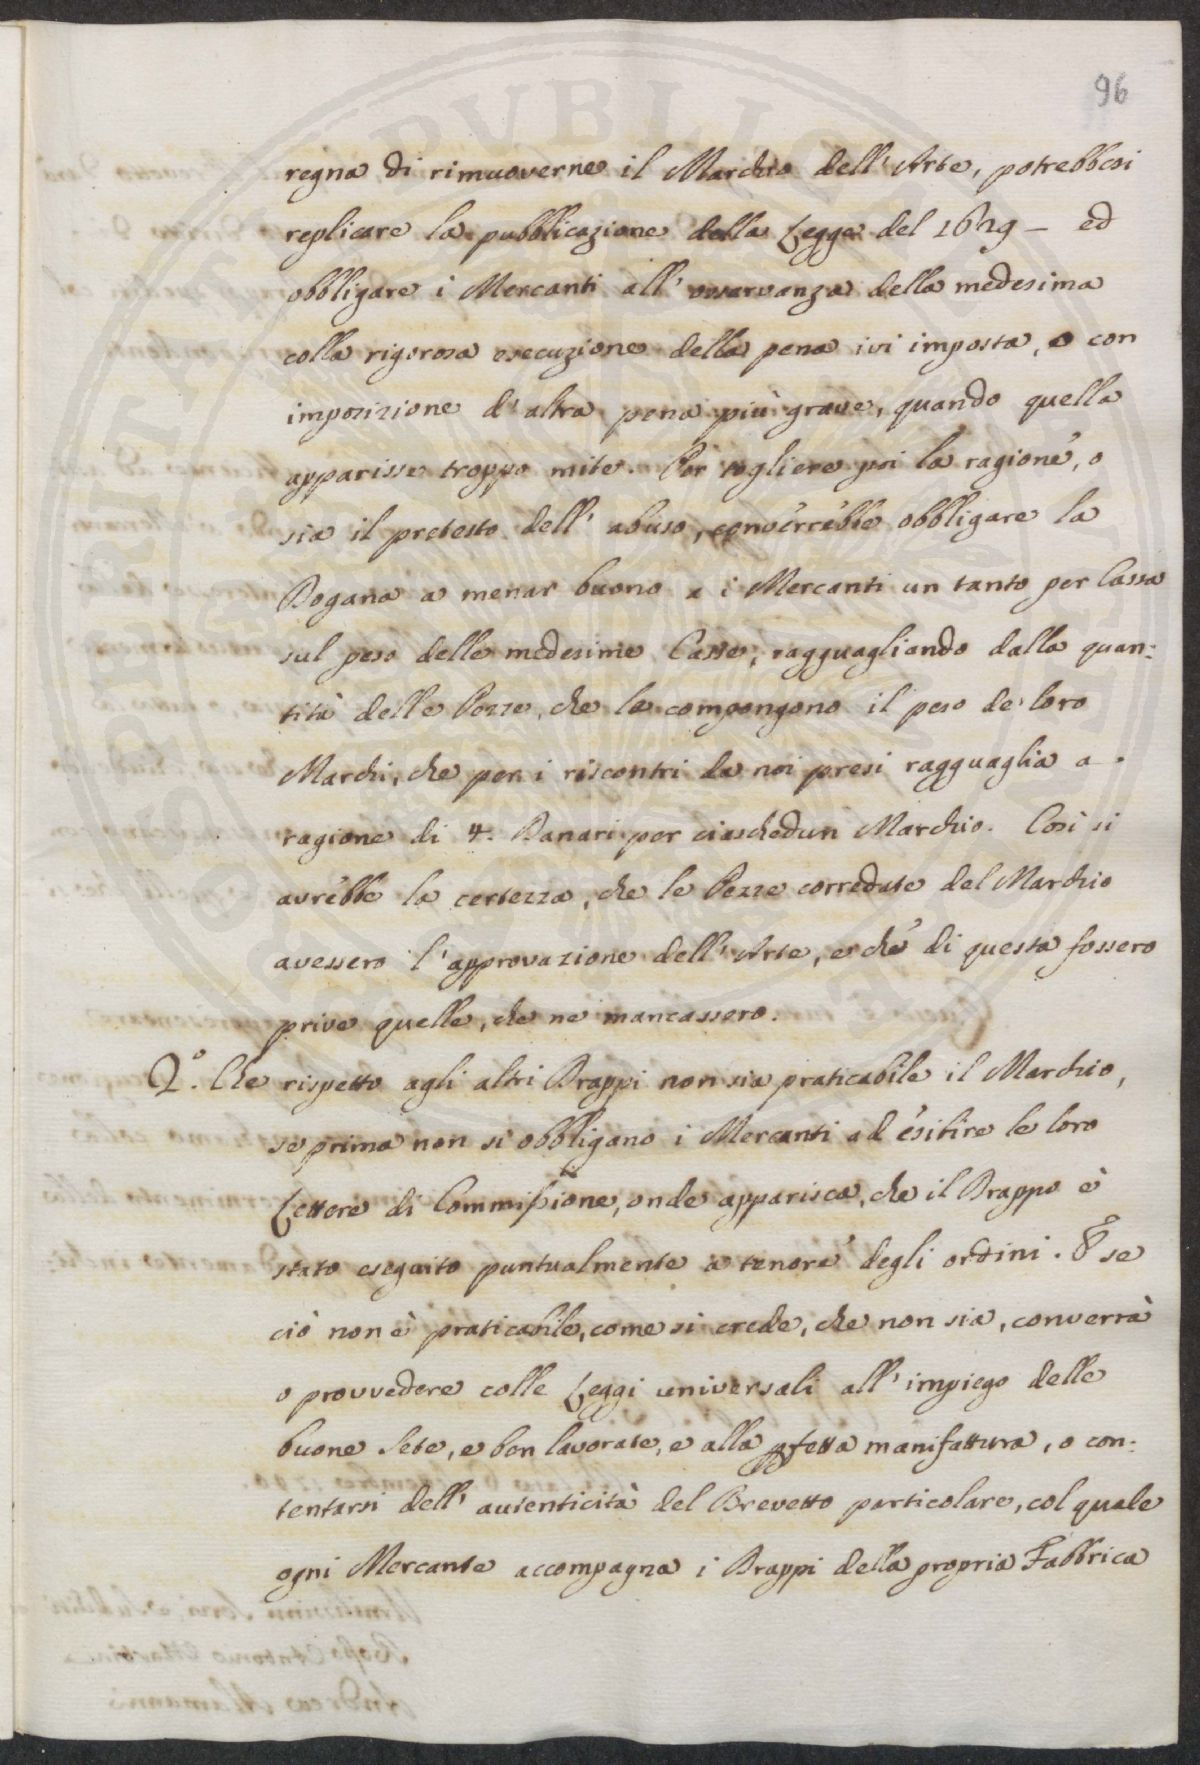 96
regna di rimuoverne il Marchio dell' Arte, potrebbesi
replicare la pubblicazione della Legge del 1629 – ed
obbligare i Mercanti all' osservanza della medesima
colla rigorosa esecuzione della pena ivi imposta, o con
imposizione d' altra pena più grave, quando quella
apparisse troppo mite. Per togliere poi la ragione, o
sia il pretesto dell' abuso, converrebbe obbligare la
Dogana a menar buono a i Mercanti un tanto per Cassa
sul peso delle medesime Casse, ragguagliando dalla quan:
tità delle Pezze, che le compongono il peso de' loro
Marchi, che per i riscontri da noi presi ragguaglia a
ragione di 4. Danari per ciaschedun Marchio. Così si
avrebbe la certezza, che le Pezze corredate del Marchio
avessero l' approvazione dell' Arte, e che di questa fossero
prive quelle, che ne mancassero.
2.º Che rispetto agli altri Drappi non sia praticabile il Marchio,
se prima non si obbligano i Mercanti ad esibire le loro
Lettere di Commissione, onde apparisca, che il Drappo è
stato eseguito puntualmente a tenore degli ordini. E se
ciò non è praticabile, come si crede, che non sia, converrà
o provvedere colle Leggi universali all' impiego delle
buone Sete, e ben lavorate, e alla pfetta manifattura, o con:
tentarsi dell' autenticità del Brevetto particolare, col quale
ogni Mercante accompagna i Drappi della propria Fabbrica